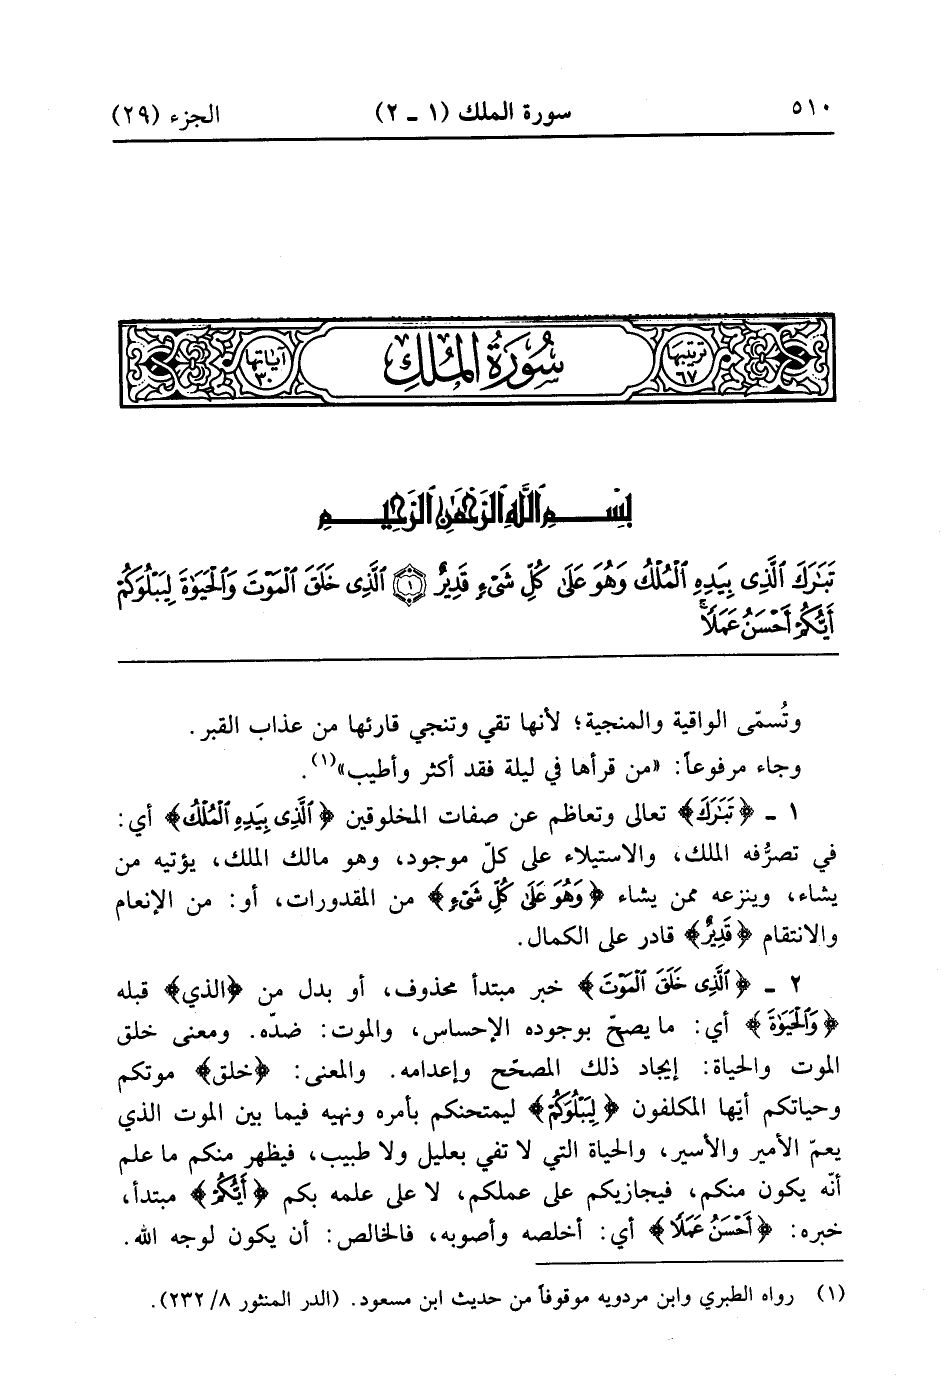 ٥١٠ سورة الملك (١ - ٢) الجزء (٢٩)
ترتيبها ٦٧ سُورَةُ المُلْكِ آياتها ٣٠
بِسْمِ ٱللَّهِ ٱلرَّحْمَٰنِ ٱلرَّحِيمِ
تَبَٰرَكَ ٱلَّذِى بِيَدِهِ ٱلْمُلْكُ وَهُوَ عَلَىٰ كُلِّ شَىْءٍ قَدِيرٌ ۝١ ٱلَّذِى خَلَقَ ٱلْمَوْتَ وَٱلْحَيَوٰةَ لِيَبْلُوَكُمْ
أَيُّكُمْ أَحْسَنُ عَمَلًاۚ
وتُسمّى الواقية والمنجية؛ لأنها تقي وتنجي قارئها من عذاب القبر.
وجاء مرفوعاً: «من قرأها في ليلة فقد أكثر وأطيب»(١).
١ - ﴿تَبَٰرَكَ﴾ تعالى وتعاظم عن صفات المخلوقين ﴿ٱلَّذِى بِيَدِهِ ٱلْمُلْكُ﴾ أي:
في تصرُّفه الملك، والاستيلاء على كلّ موجود، وهو مالك الملك، يؤتيه من
يشاء، وينزعه ممن يشاء ﴿وَهُوَ عَلَىٰ كُلِّ شَىْءٍ﴾ من المقدورات، أو: من الإنعام
والانتقام ﴿قَدِيرٌ﴾ قادر على الكمال.
٢ - ﴿ٱلَّذِى خَلَقَ ٱلْمَوْتَ﴾ خبر مبتدأ محذوف، أو بدل من ﴿الذي﴾ قبله
﴿وَٱلْحَيَوٰةَ﴾ أي: ما يصحّ بوجوده الإحساس، والموت: ضدّه. ومعنى خلق
الموت والحياة: إيجاد ذلك المصحّح وإعدامه. والمعنى: ﴿خلق﴾ موتكم
وحياتكم أيّها المكلفون ﴿لِيَبْلُوَكُمْ﴾ ليمتحنكم بأمره ونهيه فيما بين الموت الذي
يعمّ الأمير والأسير، والحياة التي لا تفي بعليل ولا طبيب، فيظهر منكم ما علم
أنّه يكون منكم، فيجازيكم على عملكم، لا على علمه بكم ﴿أَيُّكُمْ﴾ مبتدأ،
خبره: ﴿أَحْسَنُ عَمَلًا﴾ أي: أخلصه وأصوبه، فالخالص: أن يكون لوجه الله.
(١) رواه الطبري وابن مردويه موقوفاً من حديث ابن مسعود. (الدر المنثور ٨/ ٢٣٢).